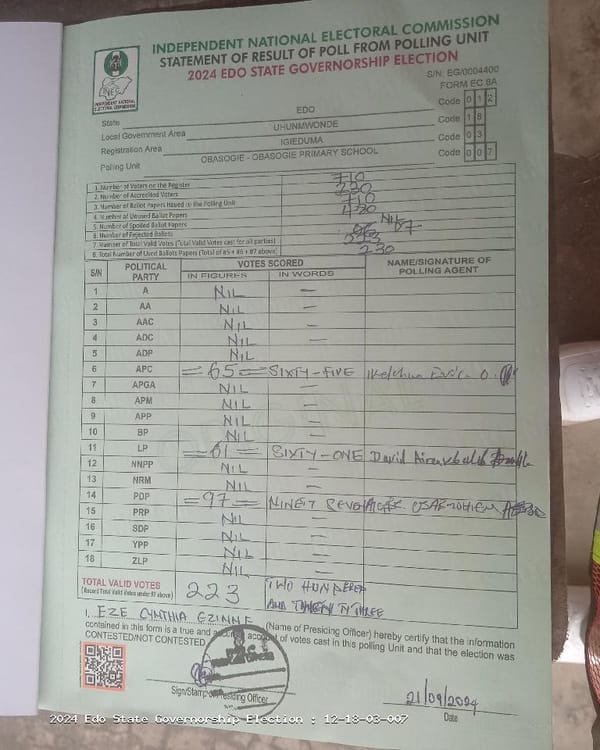 INDEPENDENT NATIONAL ELECTORAL COMMISSION
STATEMENT OF RESULT OF POLL FROM POLLING UNIT
2024 EDO STATE GOVERNORSHIP ELECTION
S/N: EG/0004400
FORM EC 8A
INEC
INDEPENDENT NATIONAL ELECTORAL COMMISSION
State EDO Code 0 1 2
Local Government Area UHUNMWONDE Code 1 8
Registration Area IGIEDUMA Code 0 3
Polling Unit OBASOGIE - OBASOGIE PRIMARY SCHOOL Code 0 0 7
1. Number of Voters on the Register 710
2. Number of Accredited Voters 230
3. Number of Ballot Papers Issued to the Polling Unit 710
4. Number of Unused Ballot Papers 480
5. Number of Spoiled Ballot Papers NIL
6. Number of Rejected Ballots 07
7. Number of Total Valid Votes (Total Valid Votes cast for all parties) 223
8. Total Number of Used Ballots Papers (Total of #5 + #6 + #7 above) 230
S/N POLITICAL PARTY VOTES SCORED NAME/SIGNATURE OF POLLING AGENT
IN FIGURES IN WORDS
1 A NIL —
2 AA NIL —
3 AAC NIL —
4 ADC NIL —
5 ADP NIL
6 APC =65= SIXTY-FIVE
7 APGA NIL —
8 APM NIL —
9 APP NIL —
10 BP NIL —
11 LP =61= SIXTY-ONE David
12 NNPP NIL —
13 NRM NIL —
14 PDP =97= NINETY SEVEN
15 PRP NIL —
16 SDP NIL —
17 YPP NIL —
18 ZLP NIL —
TOTAL VALID VOTES 223 TWO HUNDERED
(Record Total Valid Votes under #7 above) AND THREE
I, EZE CYNTHIA EZINNE (Name of Presiding Officer) hereby certify that the information
contained in this form is a true and account of votes cast in this Polling Unit and that the election was
CONTESTED/NOT CONTESTED
Sign/Stamp of Presiding Officer
21/09/2024
Date
2024 Edo State Governorship Election : 12-18-03-007